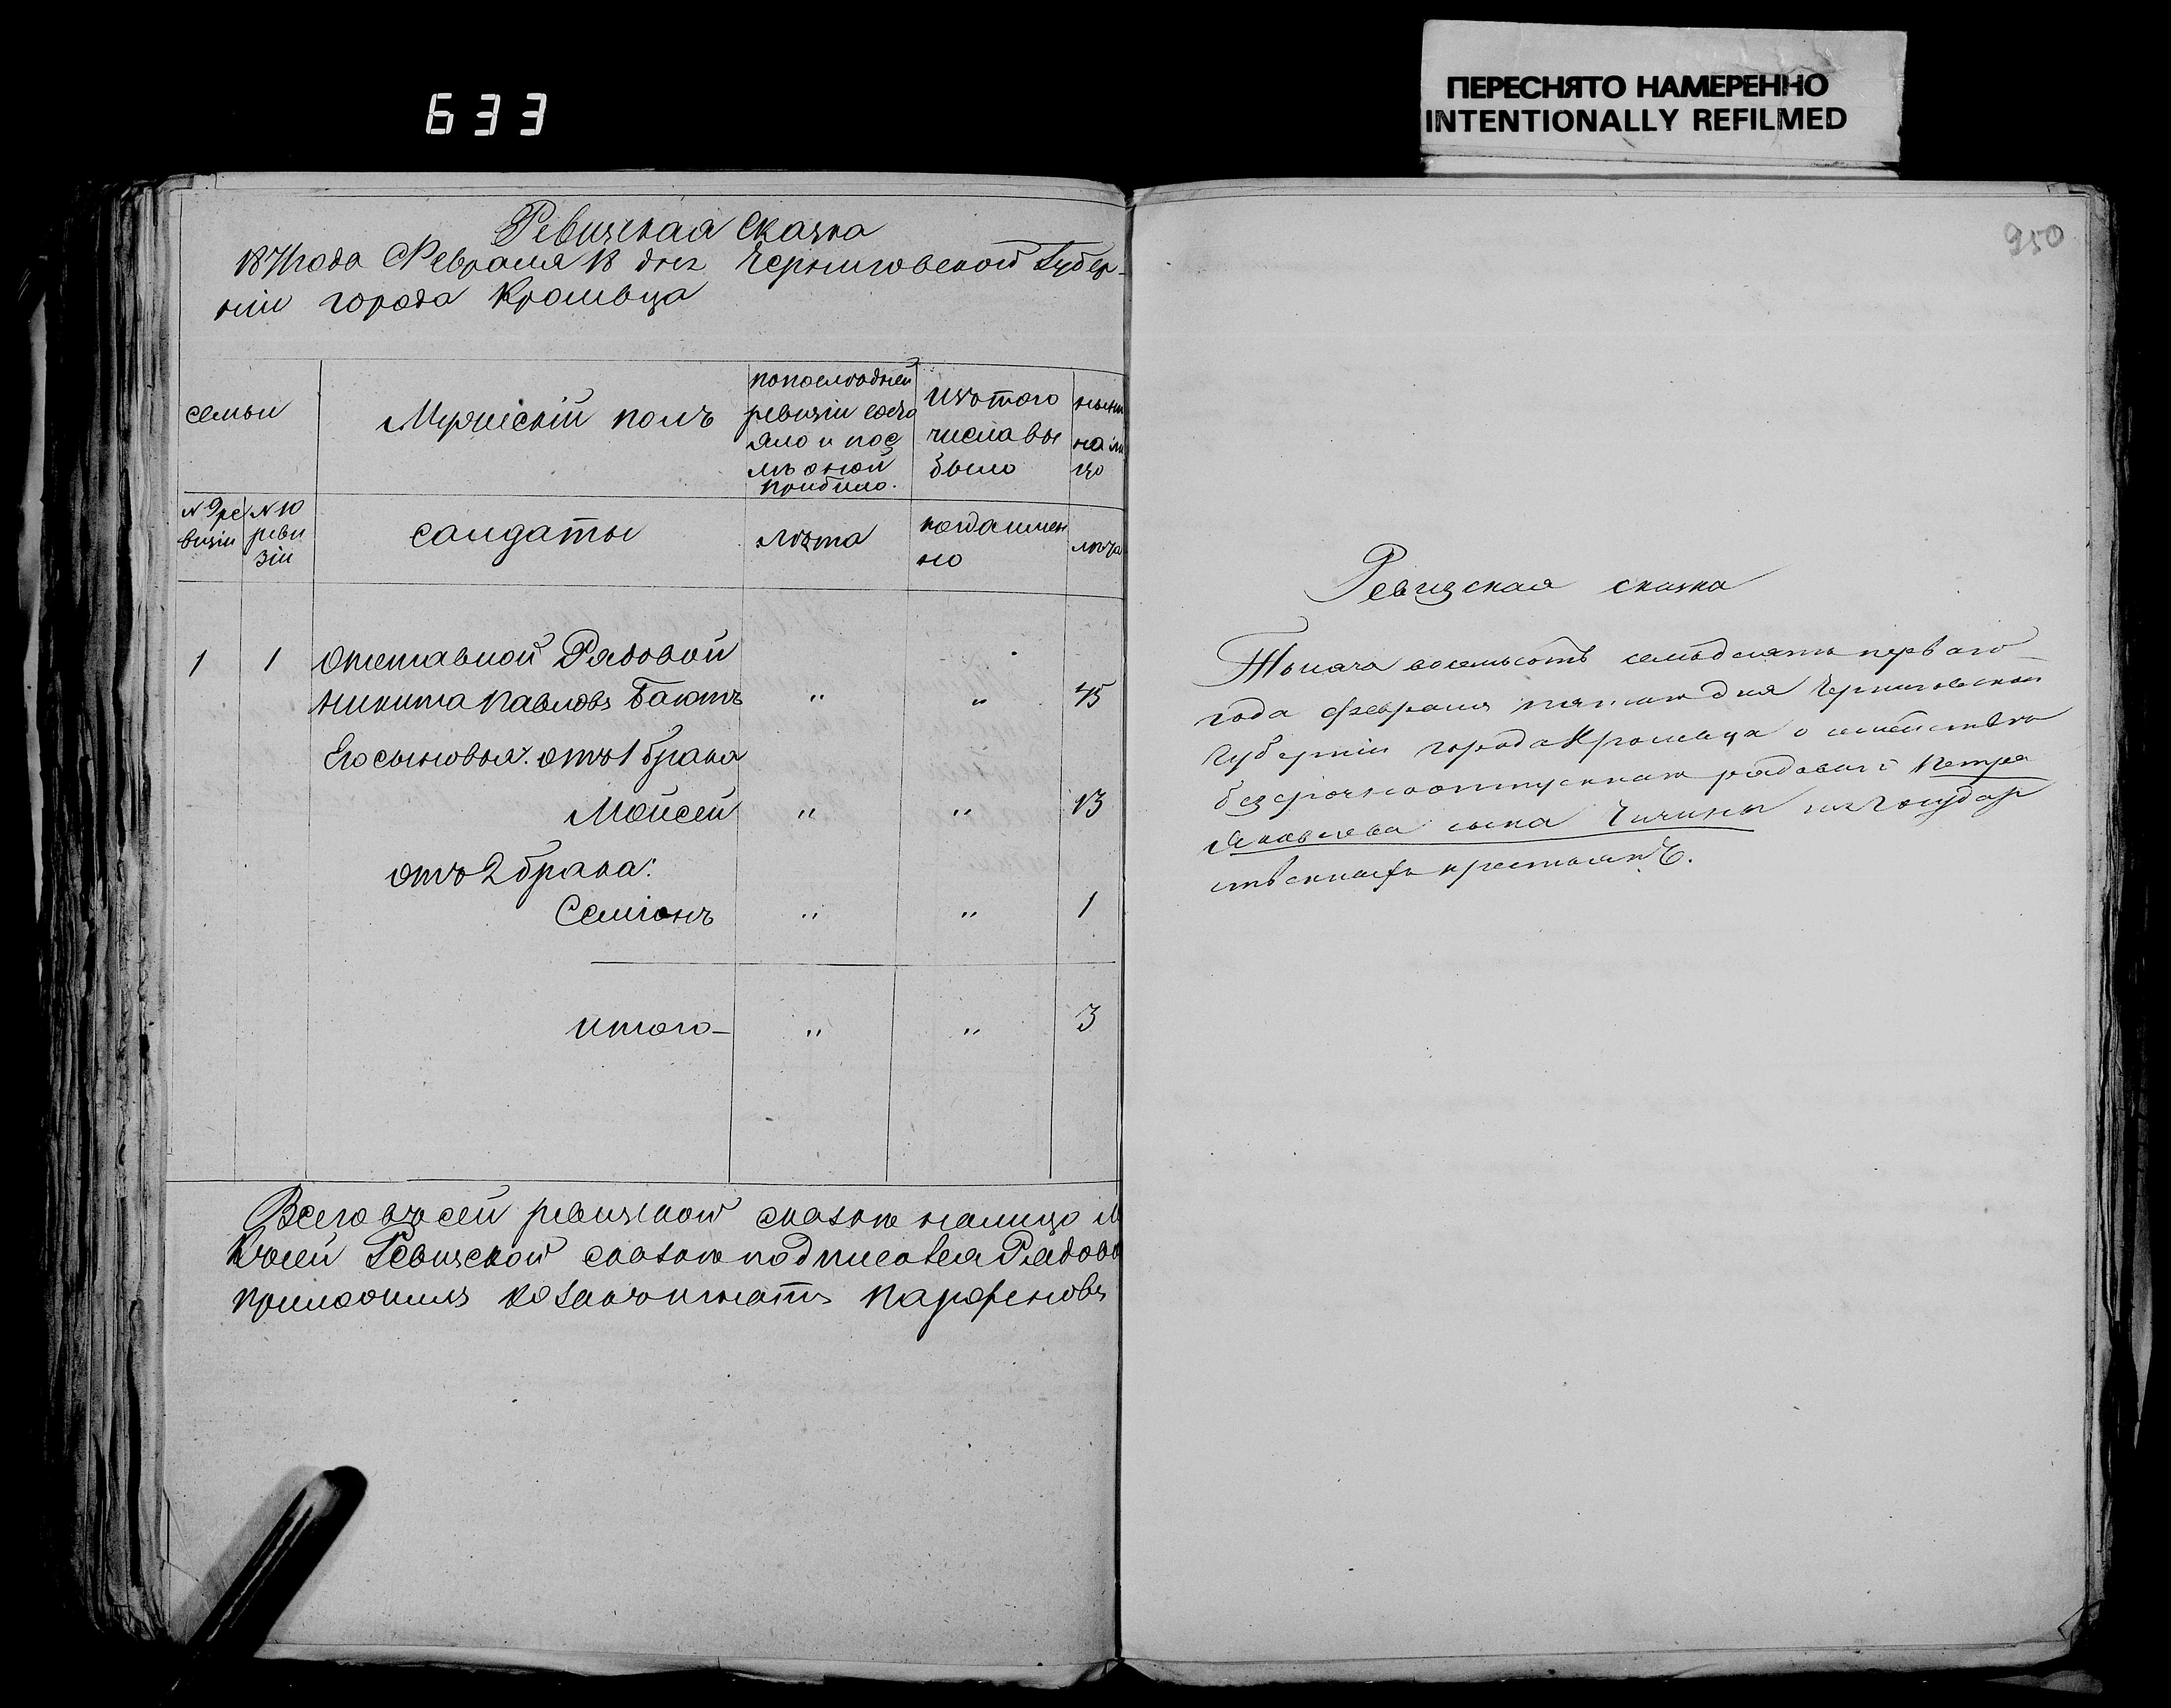 633
ПЕРЕСНЯТО НАМЕРЕННО
INTENTIONALLY REFILMED
Ревизская Сказка
1871 года Февраля 18 дня Черниговской Губер-
ніи города Кролевца
семьи
Мужескій полъ
попоследней
ревизіи состо
яло и пос
лѣ оной
прибыло.
Изътого
числа вы
было
нынѣ
на ли
цо
№ 9 ре
визіи
№ 10
реви
зіи
солдаты
лѣта
когда имен
но
лѣта
1 1 отставной Рядовой
Никита Павловъ " " 45
Его сыновья: отъ 1 брака
Мойсей " " 13
отъ 2 брака:
Семіонъ " " 1
итого- " " 3
Всего въ сей ревизской сказке налицо М
Къ сей Ревизской сказке подписался Рядово
Игнатъ Парфеновъ
950
Ревизская сказка
Тысяча восемьсотъ семьдесятъ перваго
года февраля дня Черниговской
Губерніи города Кролевца о семействе
безсрочноотпускнаго рядового Петра
Яковлева сына Чичины изъ Государ
ственныхъ крестьянъ.